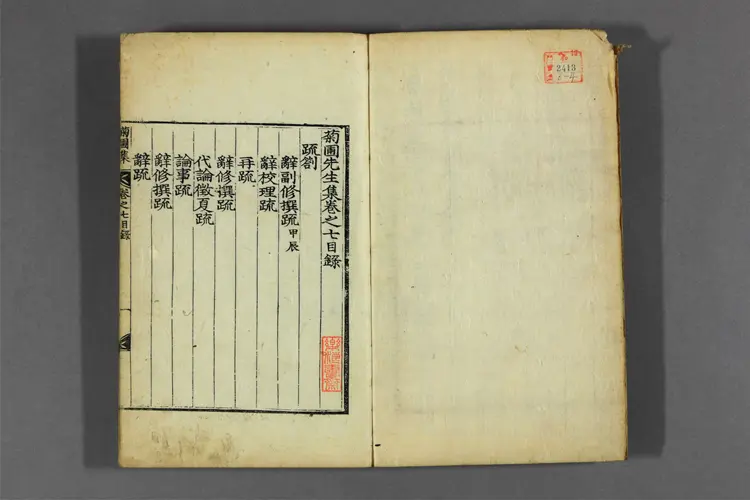 菊圃先生集卷之七目錄
疏劄
辭副修撰疏 甲辰
辭校理疏
再疏
辭修撰疏
代論徵夏疏
論事疏
辭修撰疏
辭疏
菊圃集 卷之七目錄 一
2413